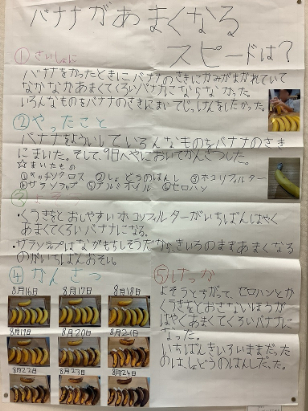 バナナがあまくなる
スピードは?
①さいしょに
バナナをかったときにバナナのさきにかみがまかれていて
なかなかあまくてくろいバナナにならなかった。
いろんなものをバナナのさきにまいてじっけんをしたかった。
②やったこと
バナナをよういていろんなものをバナナのさき
にまいた。そして、9日へやにおいてかんさつした。
☆まいたもの
①キッチンクロス ②しょどうのはんし ③ホコリフィルター
④サランラップ ⑤アルミホイル ⑥セロハン
③
・くうきをとおしやすいホコリフィルターがいちばんはやく
あまくてくろいバナナになる。
・サランラップはながもちしそうだからきいろのままあまくなる
のがいちばんおそい。
④かんさつ
8月16日 8月17日 8月18日
8月19日 8月20日 8月21日
8月22日 8月23日 8月24日
⑤けっか
よそうとちがって、セロハンとか
くうきをとおさないほうが
はやくあまくてくろいバナナに
なった。
いちばんきいろいままだった
のは、しょどうのはんしだった。